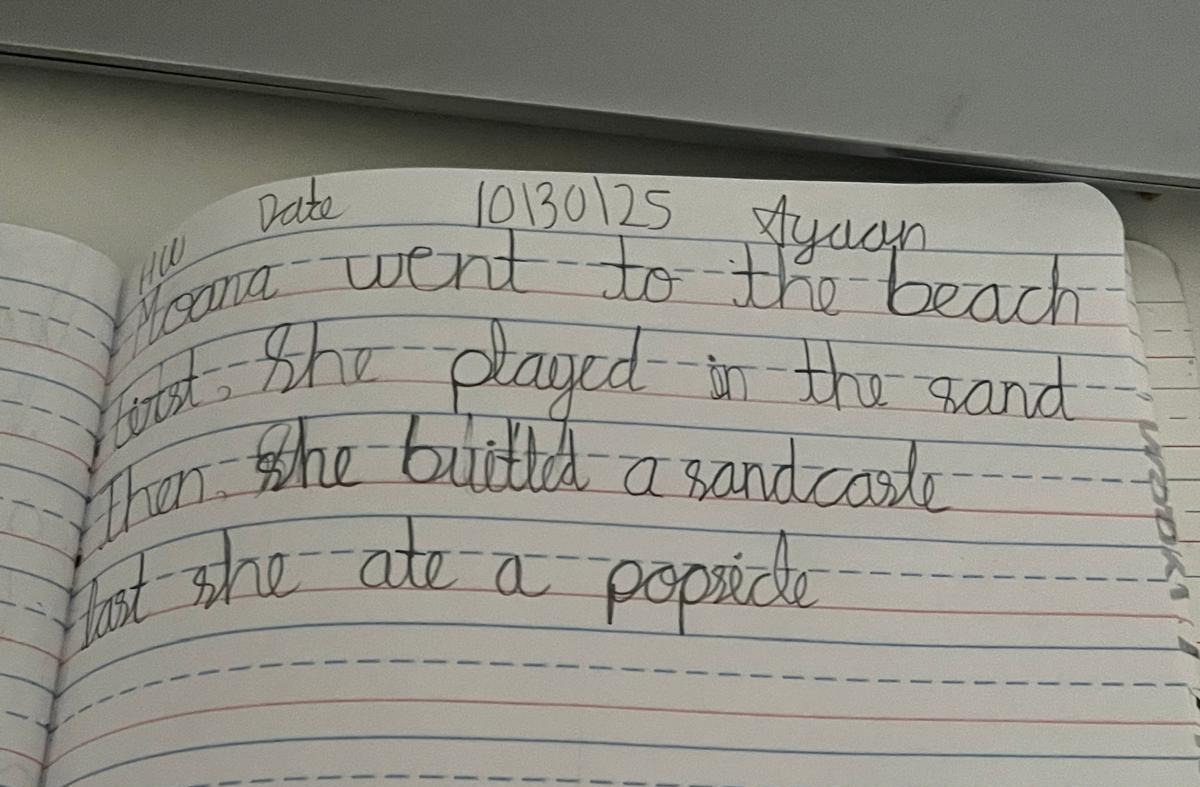 Date 10\30\25 Ayaan
HW
Moana went to the beach
first, She played in the sand
then, she builtted a sandcasle
last she ate a popsicle